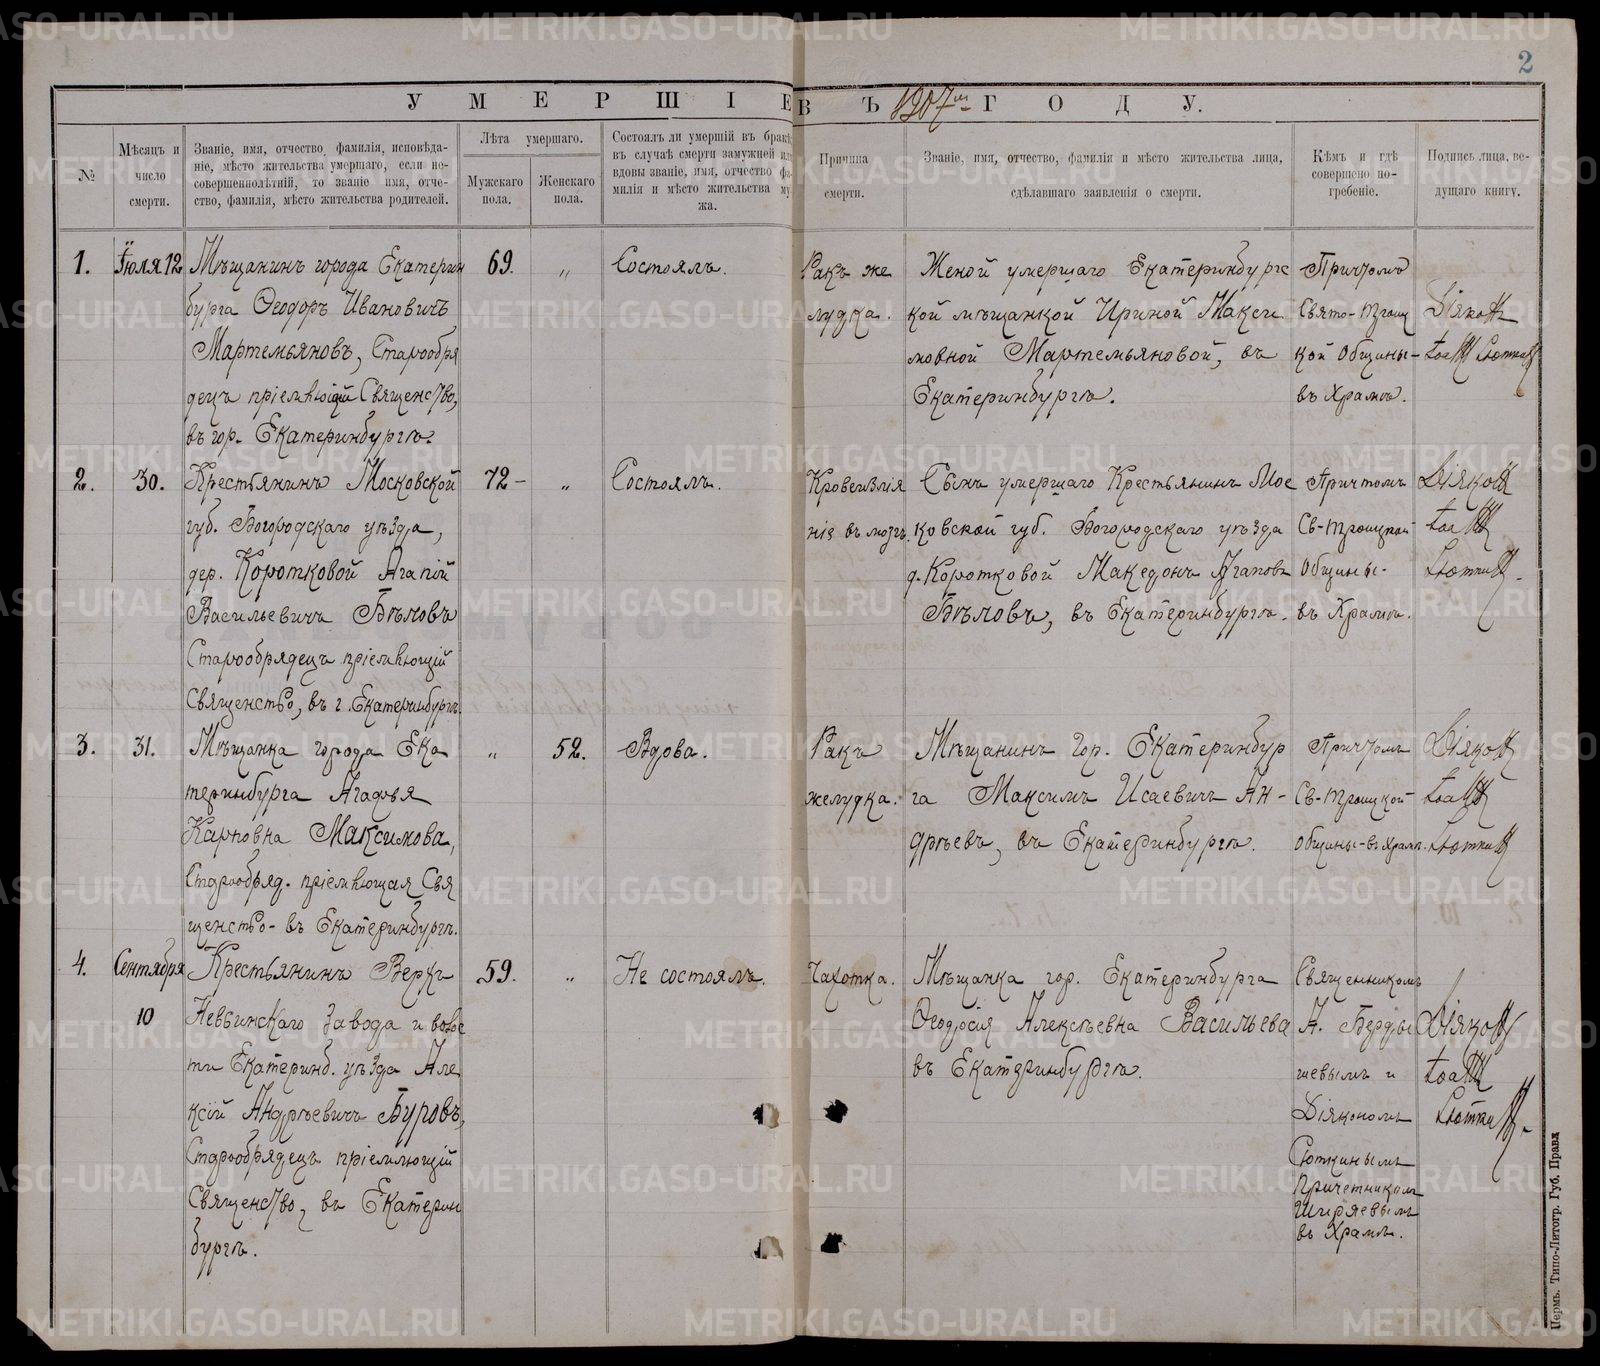 2
УМЕРШІЕ ВЪ 1907мъ ГОДУ.
№
Мѣсяцъ и
число
смерти.
Званіе, имя, отчество, фамилія, исповѣда-
ніе, мѣсто жительства умершаго, если не-
совершеннолѣтній, то званіе имя, отче-
ство, фамилія, мѣсто жительства родителей.
Лѣта умершаго.
Мужскаго
пола.
Женскаго
пола.
Состоялъ ли умершій въ бракѣ,
въ случаѣ смерти замужней или
вдовы званіе, имя, отчество фа-
милія и мѣсто жительства му-
жа.
Причина
смерти.
Званіе, имя, отчество, фамилія и мѣсто жительства лица,
сдѣлавшаго заявленія о смерти.
Кѣмъ и гдѣ
совершено по-
гребеніе.
Подпись лица, ве-
дущаго книгу.
1.
Іюля 12
Мѣщанинъ города Екатерин
бурга Ѳеодоръ Ивановичъ
Мартемьяновъ, Старообря
децъ пріемлющій Священство,
въ гор. Екатеринбургѣ.
69.
„
Состоялъ.
Ракъ же
лудка.
Женой умершаго Екатеринбургс
кой мѣщанкой Ириной Макси
мовной Мартемьяновой, въ
Екатеринбургѣ.
Причтомъ
Свято-Троиц
кой Общины-
въ Храмѣ.
Діяконъ
2.
30.
Крестьянинъ Московской
губ. Богородскаго уѣзда,
дер. Коротковой Агапій
Васильевичъ Бѣловъ
Старообрядецъ пріемлющій
Священство, въ г. Екатеринбургѣ.
72-
„
Состоялъ.
Кровеизлія
ніе въ мозгъ.
Сынъ умершаго Крестьянинъ Мос
ковской губ. Богородскаго уѣзда
д. Коротковой Македонъ Агаповъ
Бѣловъ, въ Екатеринбургѣ.
Причтомъ
Св-Троицкой
Общины-
въ Храмѣ.
Діяконъ
3.
31.
Мѣщанка города Ека
теринбурга Агафья
Карповна Максимова,
Старообряд. пріемлющая Свя
щенство- въ Екатеринбургѣ.
„
52.
Вдова.
Ракъ
желудка.
Мѣщанинъ гор. Екатеринбур
га Максимъ Исаевичъ Ан-
дреевъ, въ Екатеринбургѣ.
Причтомъ
Св-Троицкой
Общины-въ Храмѣ.
Діяконъ
4.
Сентября
10
Крестьянинъ Верхъ
Невьинскаго завода и волос
ти Екатеринб. уѣзда Але
ксій Андреевичъ Буровъ,
Старообрядецъ пріемлющій
Священство, въ Екатерин
бургѣ.
59.
„
Не состоялъ.
Чахотка.
Мѣщанка гор. Екатеринбурга
Ѳеодосія Алексѣевна Васильева
въ Екатеринбургѣ.
Священникомъ
А. Берды
шевымъ и
Діякономъ
Сюткинымъ
Причетникомъ
Ширяевымъ
въ Храмѣ.
Діяконъ
Пермь. Типо-Литогр. Губ. Правл
METRIKI.GASO-URAL.RU